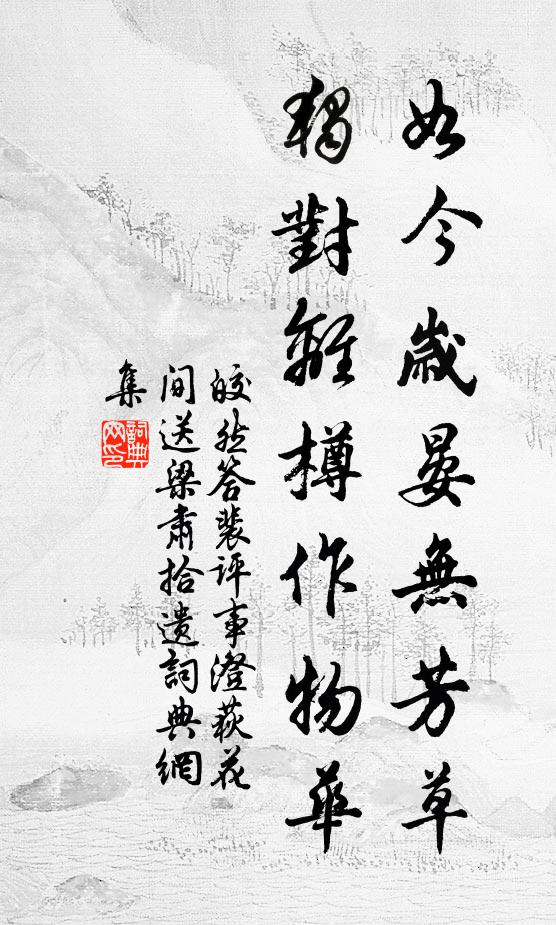 如今歲晏無芳草
獨對離樽作物華
皎然答裴評事澄荻花
間送梁肅拾遺詞典網
集
詞典網印